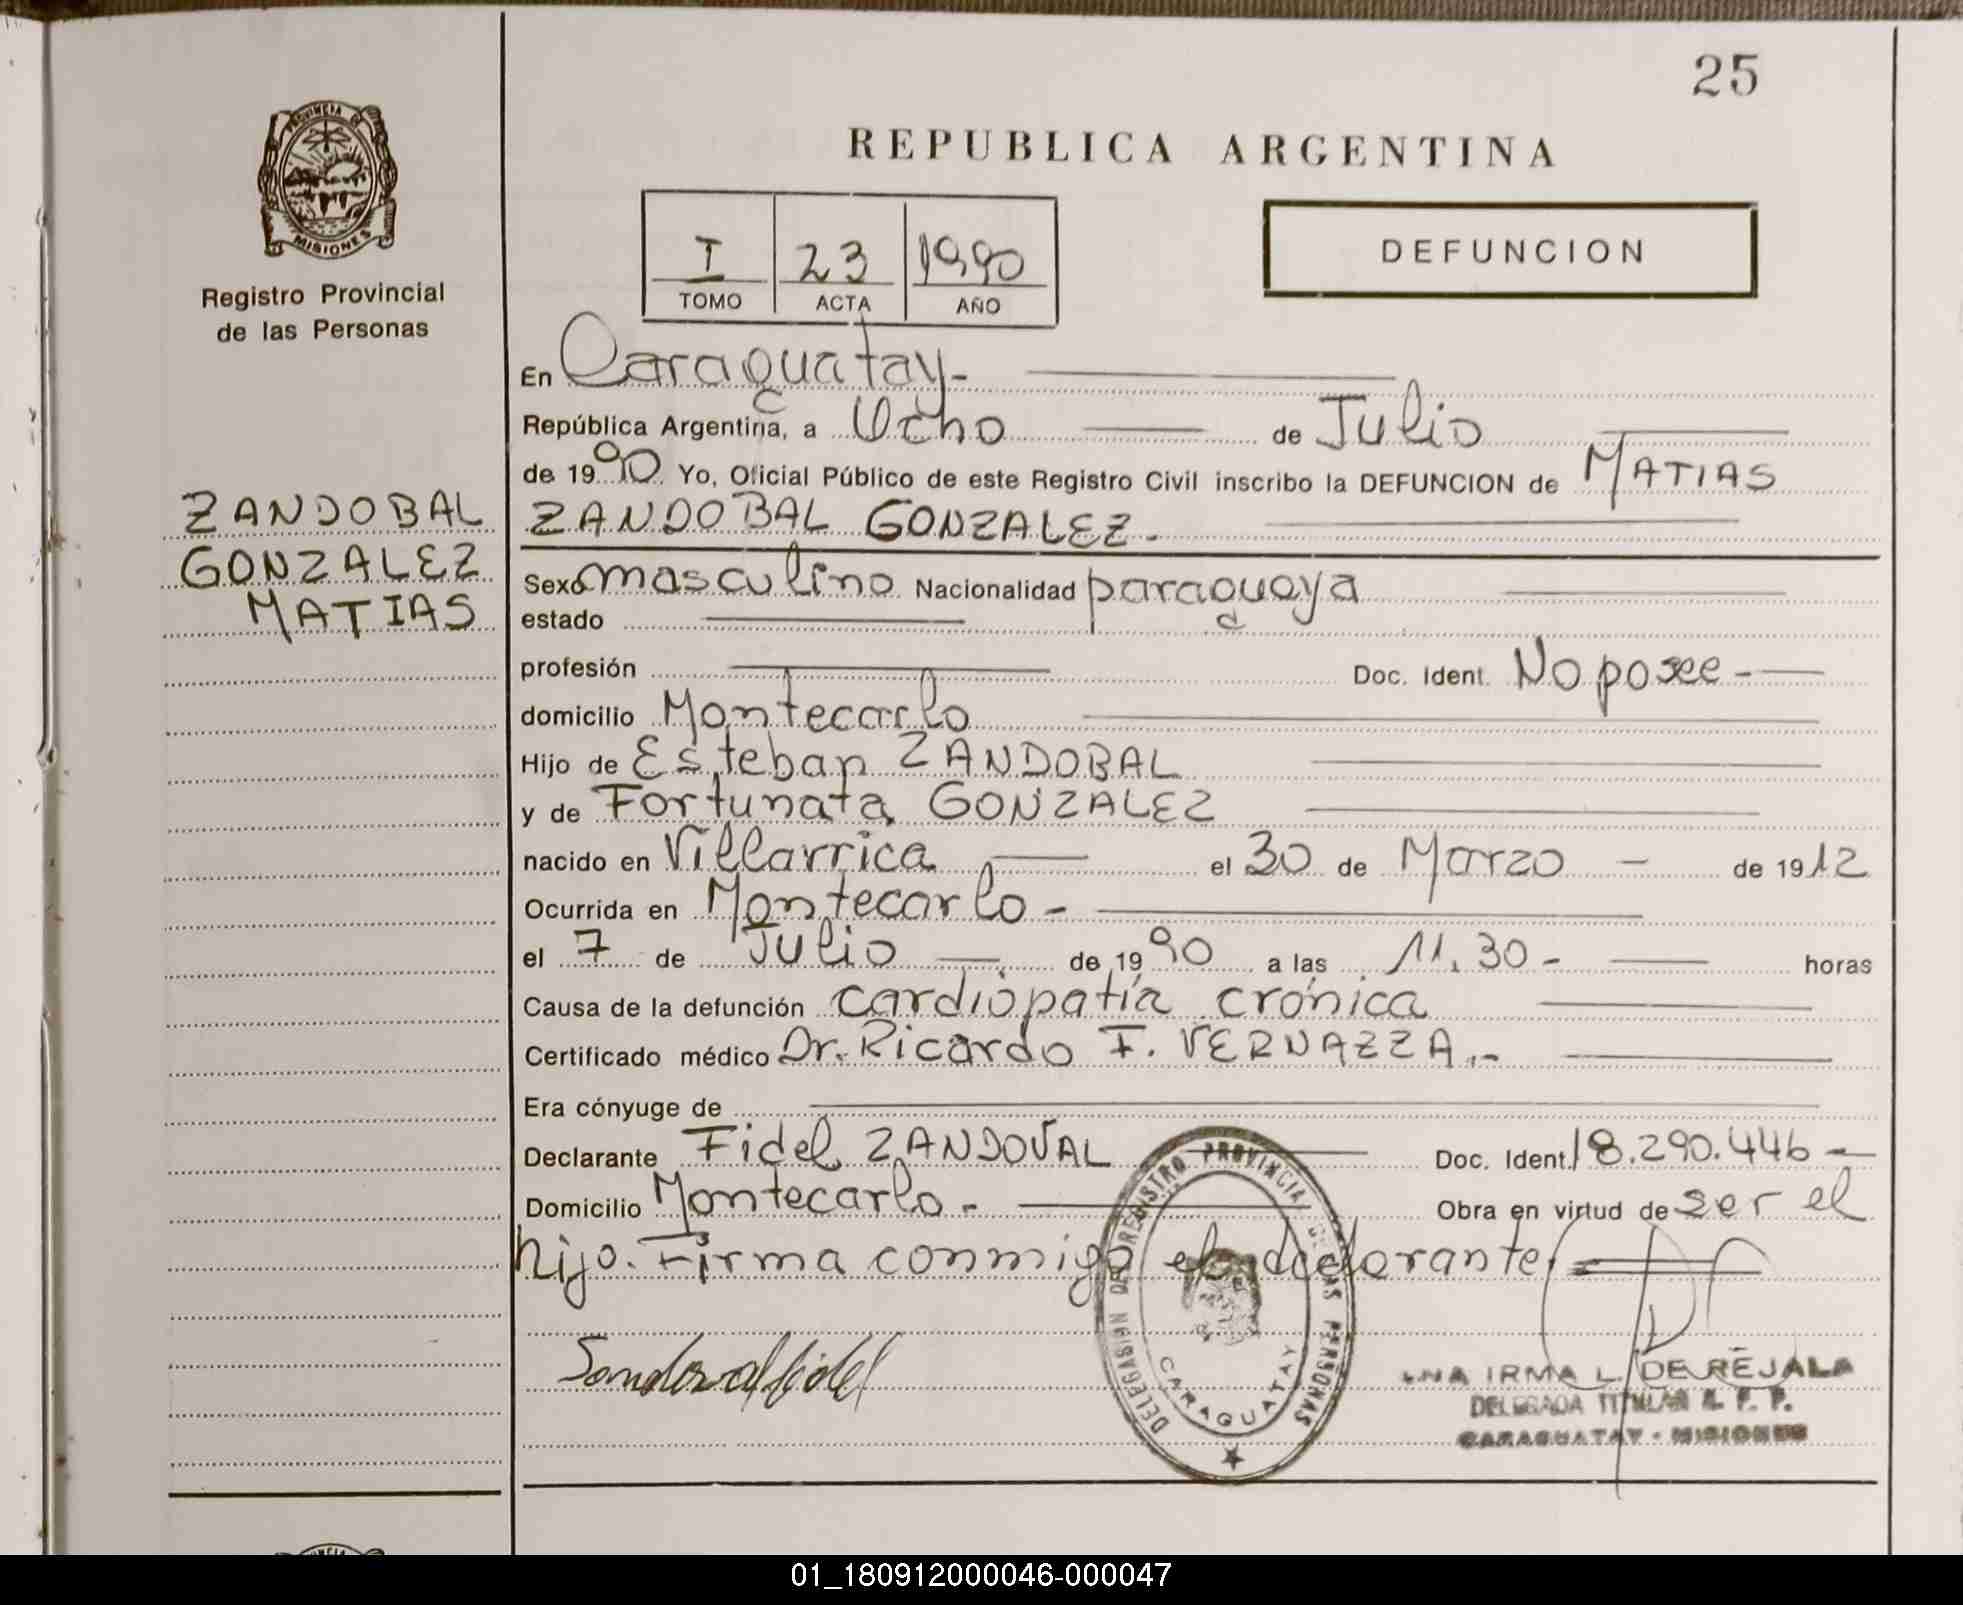 25
PROVINCIA DE
MISIONES
Registro Provincial
de las Personas
REPUBLICA ARGENTINA
I 23 1990
TOMO ACTA AÑO
DEFUNCION
En Caraguatay.-
República Argentina, a Ocho de Julio
de 1990 Yo, Oficial Público de este Registro Civil inscribo la DEFUNCION de MATIAS
ZANDOBAL GONZALEZ.-
ZANDOBAL
GONZALEZ
MATIAS
Sexo masculino Nacionalidad paraguaya
estado
profesión Doc. Ident. No posee -
domicilio Montecarlo
Hijo de Esteban ZANDOBAL
y de Fortunata GONZALEZ
nacido en Villarrica el 30 de Marzo - de 1912
Ocurrida en Montecarlo -
el 7 de Julio de 1990 a las 11.30 - horas
Causa de la defunción cardiopatía crónica
Certificado médico Dr. Ricardo F. VERNAZZA.-
Era cónyuge de
Declarante Fidel ZANDOVAL Doc. Ident. 18.290.446 -
Domicilio Montecarlo - Obra en virtud de ser el
hijo. Firma conmigo el declarante.
Sandoval fidel
DELEGASIÓN DEL REGISTRO PROVINCIAL DE LAS PERSONAS
CARAGUATAY
IRMA L. DE REJALA
DELEGADA TITULAR R. P. P.
CARAGUATAY - MISIONES
01_180912000046-000047